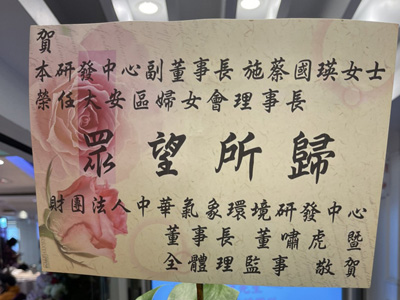 賀
本研發中心副董事長施蔡國瑛女士
榮任大安區婦女會理事長
眾望所歸
財團法人中華氣象環境研發中心
董事長 董嘯虎 暨
全體理監事 敬賀